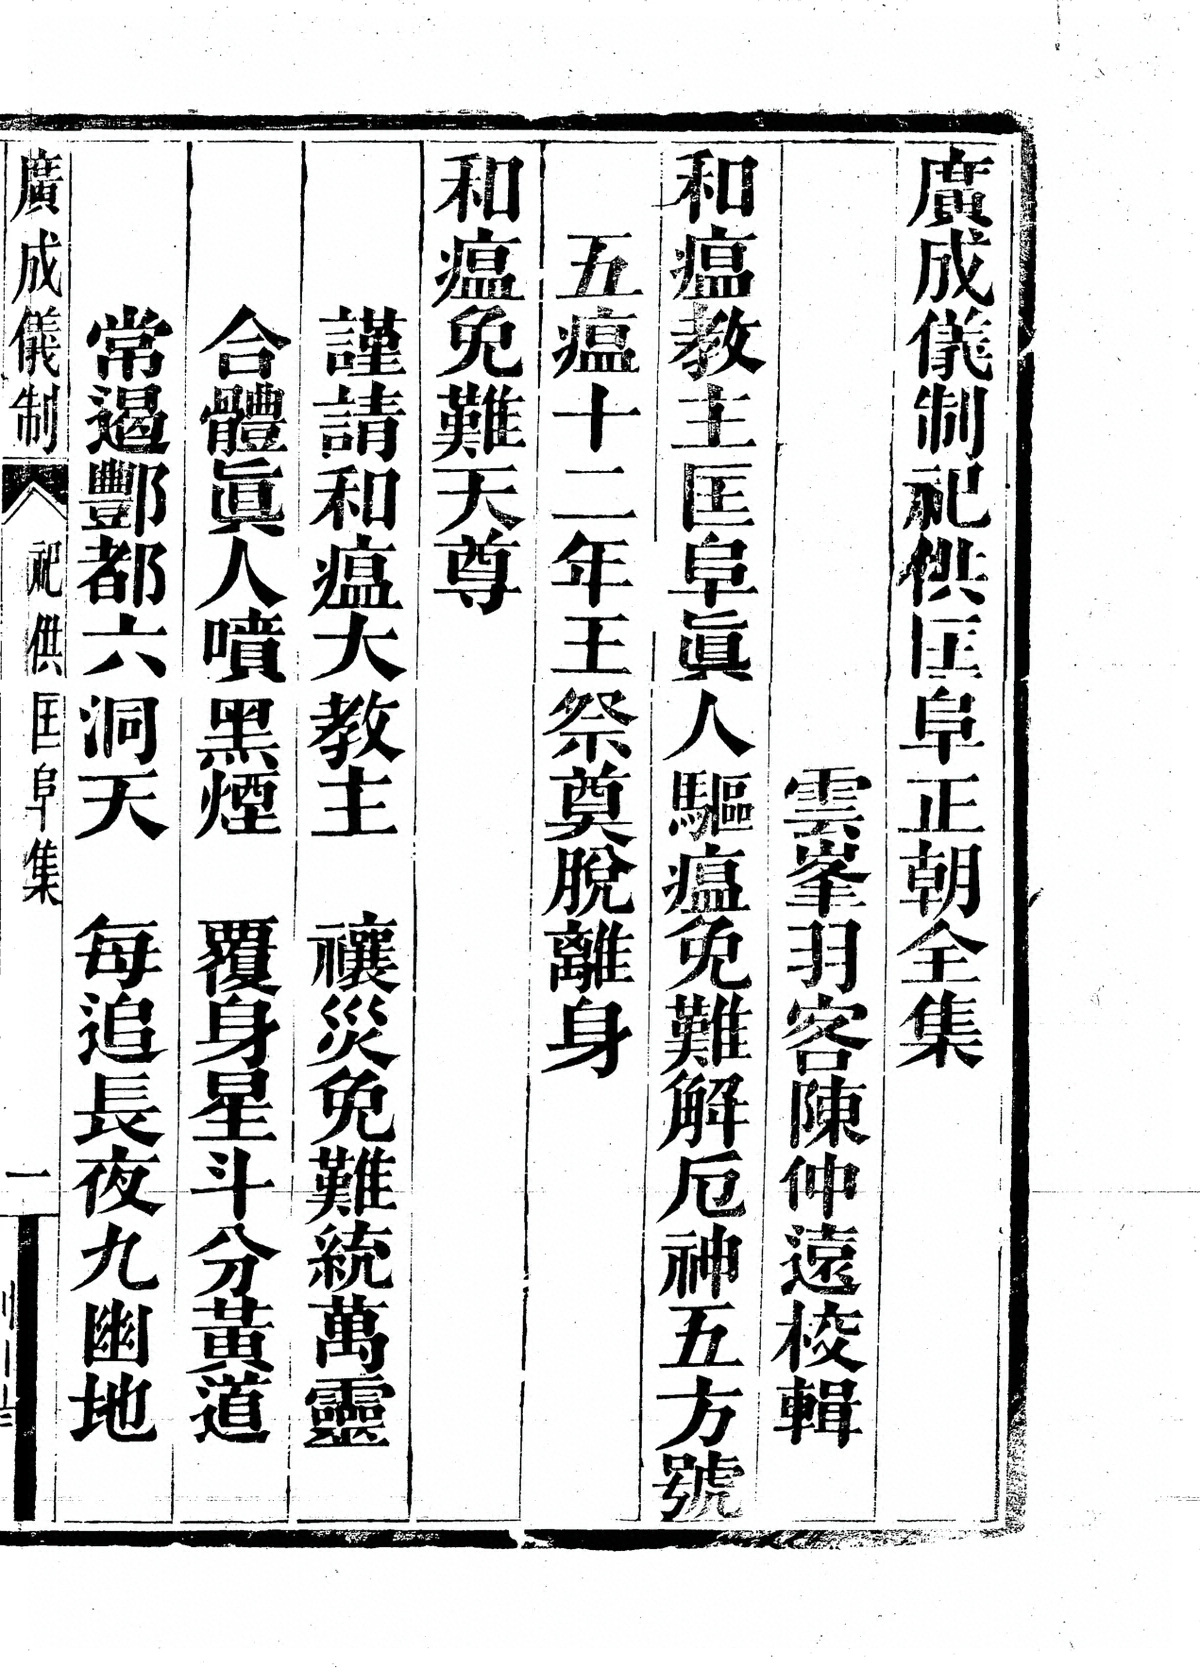 廣成儀制祀供匡阜正朝全集
雲峯羽客陳仲遠校輯
和瘟教主匡阜眞人驅瘟免難解厄神五方號
五瘟十二年王祭奠脫離身
和瘟免難天尊
謹請和瘟大教主　禳災免難統萬靈
合體眞人噴黑煙　覆身星斗分黃道
常遏酆都六洞天　每追長夜九幽地
廣成儀制　祀供匡阜集　一